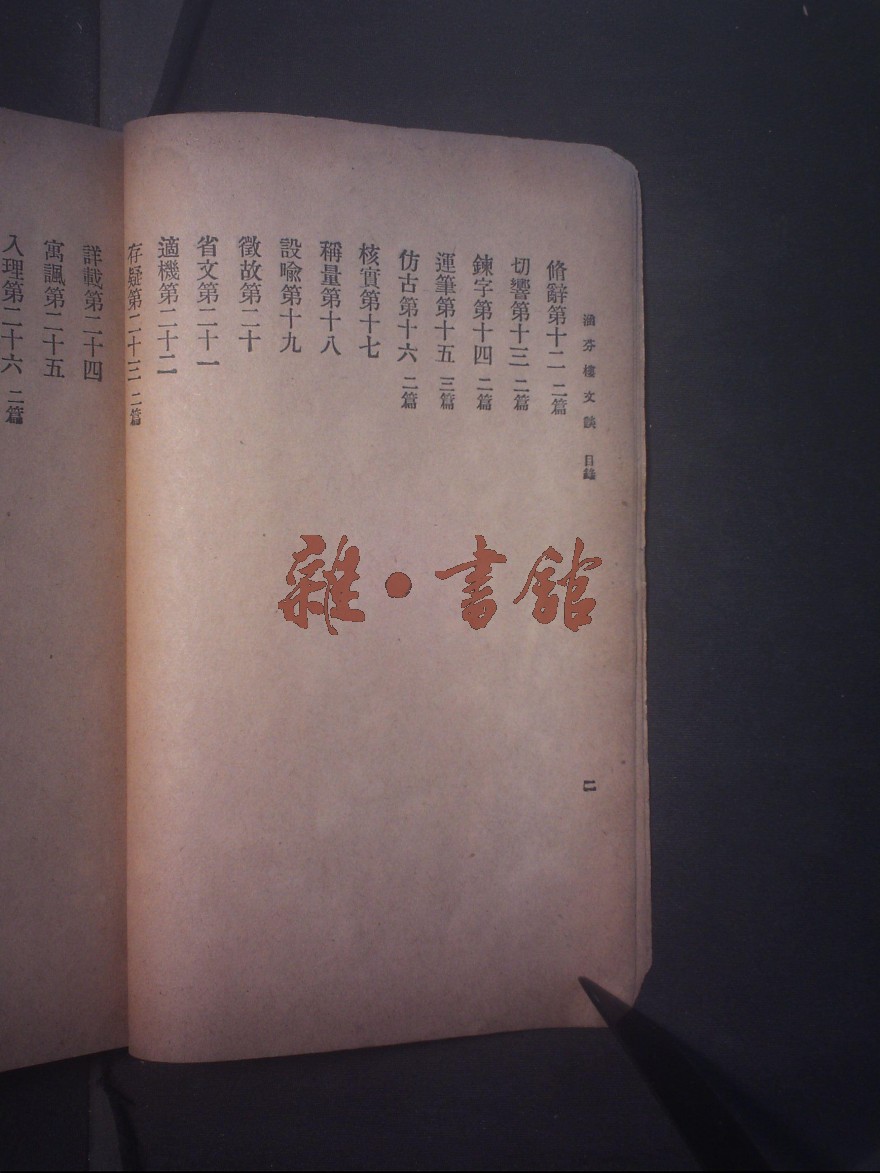 涵芬樓文談 目錄
脩辭第十二 二篇
切響第十三 二篇
鍊字第十四 二篇
運筆第十五 三篇
仿古第十六 二篇
核實第十七
稱量第十八
設喩第十九
徵故第二十
省文第二十一
適機第二十二
存疑第二十三 二篇
詳載第二十四
寓諷第二十五
入理第二十六 二篇
二
雜·書館